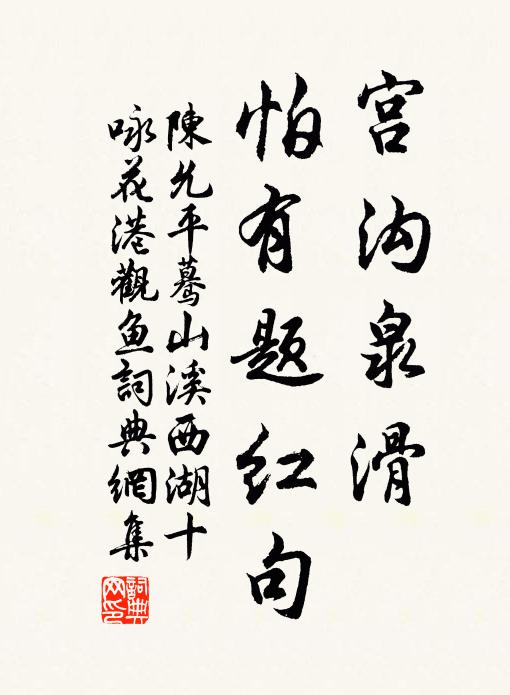 宫沟泉滑
怕有题红句
陳允平驀山溪西湖十
咏花港觀鱼詞典網集
詞典网印